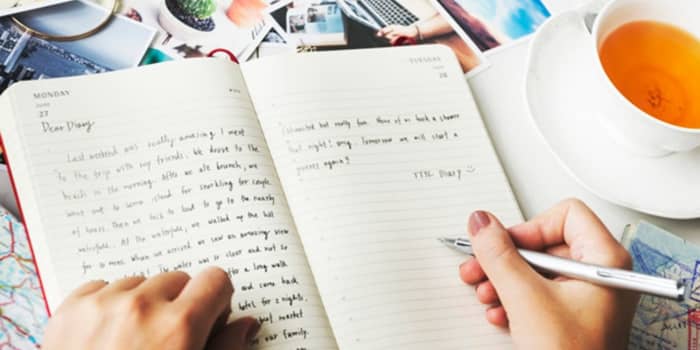 MONDAY
June
27
Dear Diary
Last weekend was really amazing! I went
to the trip with my friends. We drove to the
beach in the morning. After we ate brunch, we
went out to some island for snorkling for couple
of hours. Then we back to boat to go to the nearby
waterfalls. At the waterfalls, we walked up the hill
for 30 mins. When we arrived we saw an amazing view
The water was so clear and not so
for a long walk
and come back
hotel for 2 nights.
market
our family.
TUESDAY
June
28
Exhausted but really fun. None of us took a shower
that night! omg. Tomorrow we will start a
journey again!!
TTYL Diary